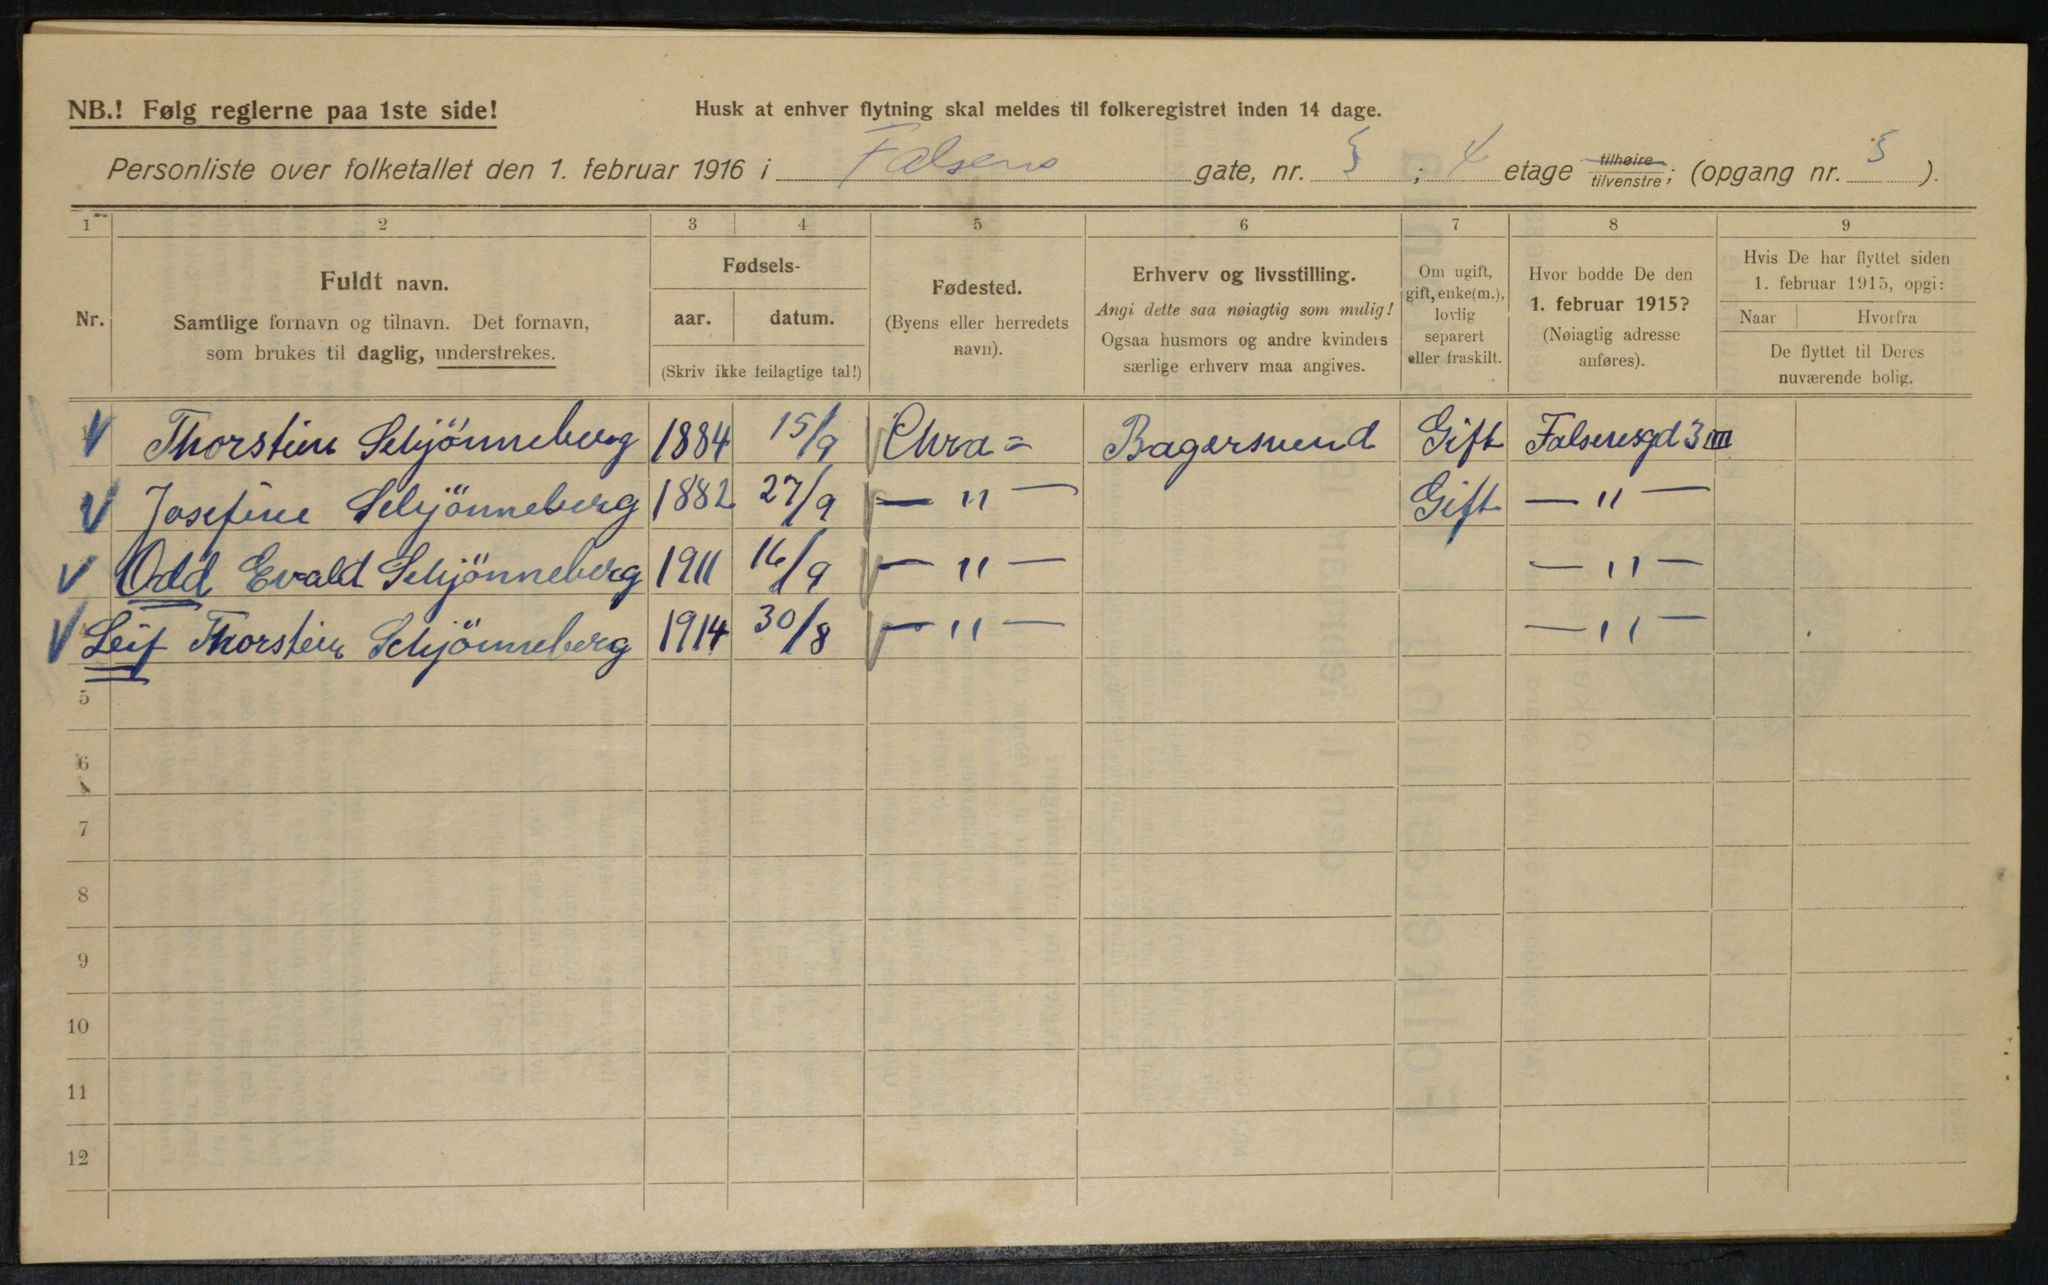 NB.! Følg reglerne paa 1ste side!
Husk at enhver flytning skal meldes til folkeregistret inden 14 dage.
Personliste over folketallet den 1. februar 1916 i Falsens gate, nr. 3; 4 etage tilhøire tilvenstre; (opgang nr. 3).
1 2 3 4 5 6 7 8 9
Nr.
Fuldt navn.
Samtlige fornavn og tilnavn. Det fornavn,
som brukes til daglig, understrekes.
Fødsels-
aar. datum.
(Skriv ikke feilagtige tal!)
Fødested.
(Byens eller herredets
navn).
Erhverv og livsstilling.
Angi dette saa nøiagtig som mulig!
Ogsaa husmors og andre kvinders
særlige erhverv maa angives.
Om ugift,
gift, enke(m.),
lovlig
separert
eller fraskilt.
Hvor bodde De den
1. februar 1915?
(Nøiagtig adresse
anføres).
Hvis De har flyttet siden
1. februar 1915, opgi:
Naar Hvorfra
De flyttet til Deres
nuværende bolig.
Thorstein Schjönneberg 1884 15/9 Chra= Bagersvend Gift Falsensgd 3 IIII
Josefine Schjönneberg 1882 27/9 — " — Gift — " —
Odd Evald Schjönneberg 1911 16/9 — " — — " —
Leif Thorstein Schjönneberg 1914 30/8 — " — — " —
5
6
7
8
9
10
11
12